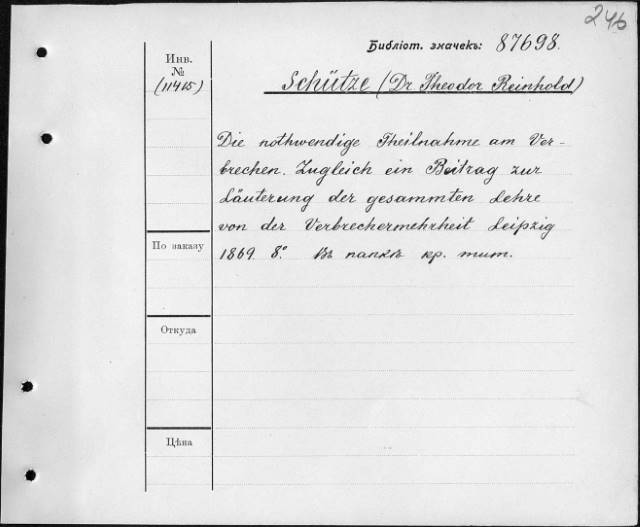 246
Библіот. значекъ: 87698.
Инв.
№
(11415)
Schütze (Dr. Theodor Reinhold)
Die nothwendige Theilnahme am Ver-
brechen. Zugleich ein Beitrag zur
Läuterung der gesammten Lehre
von der Verbrechermehrheit Leipzig
1869. 8.° Въ папкѣ кр. тит.
По заказу
Откуда
Цѣна